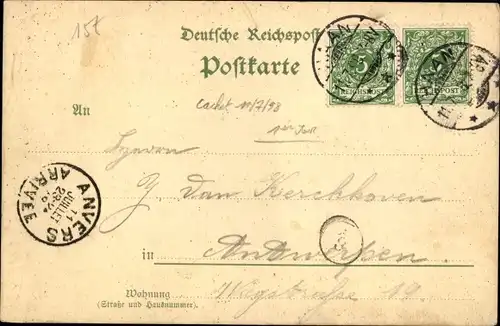 15t
Deutsche Reichspost
Postkarte
5
REICHSPOST
REICHSPOST
HAAN
HAAN
Cachet 11/7/98
1er Jour
An
Herrn
J Van Kerckhoven
ANVERS
11
JUILLET
ARRIVEE
in Antwerpen
Wohnung
(Straße und Hausnummer)
19